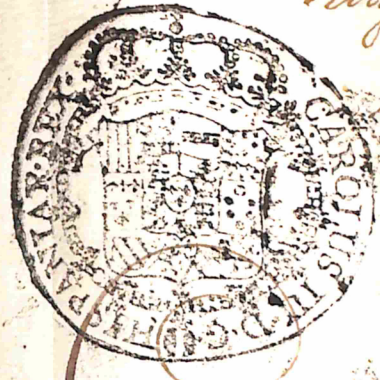 CAROLUS IV D. G. HISPANIAR. REX